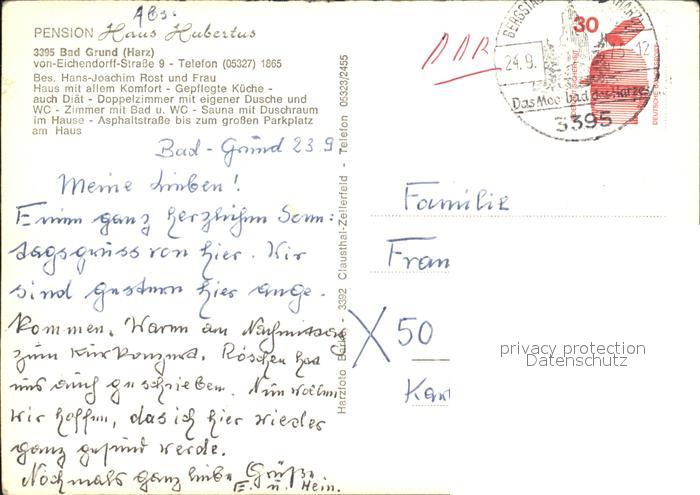 Abs.
PENSION Haus Hubertus
3395 Bad Grund (Harz)
von-Eichendorff-Straße 9 - Telefon (05327) 1865
Bes. Hans-Joachim Rost und Frau
Haus mit allem Komfort - Gepflegte Küche -
auch Diät - Doppelzimmer mit eigener Dusche und
WC - Zimmer mit Bad u. WC - Sauna mit Duschraum
im Hause - Asphaltstraße bis zum großen Parkplatz
am Haus
Bad-Grund 23.9
Meine Lieben!
Einen ganz herzlichen Sonn:
tagsgruss von hier. Wir
sind gestern hier ange-
kommen. Waren am Nachmittag
zum Kurkonzert. Röschen hat
uns auch geschrieben. Nun wollen
wir hoffen, das ich hier wieder
ganz gesund werde.
Nochmals ganz liebe Grüße
E. u. Hein.
Harzfoto 3392 Clausthal-Zellerfeld - Telefon 05323/2455
DDR
30
24.9.
-12
3395
Familie
Fran
X 50
Kar
privacy protection
Datenschutz